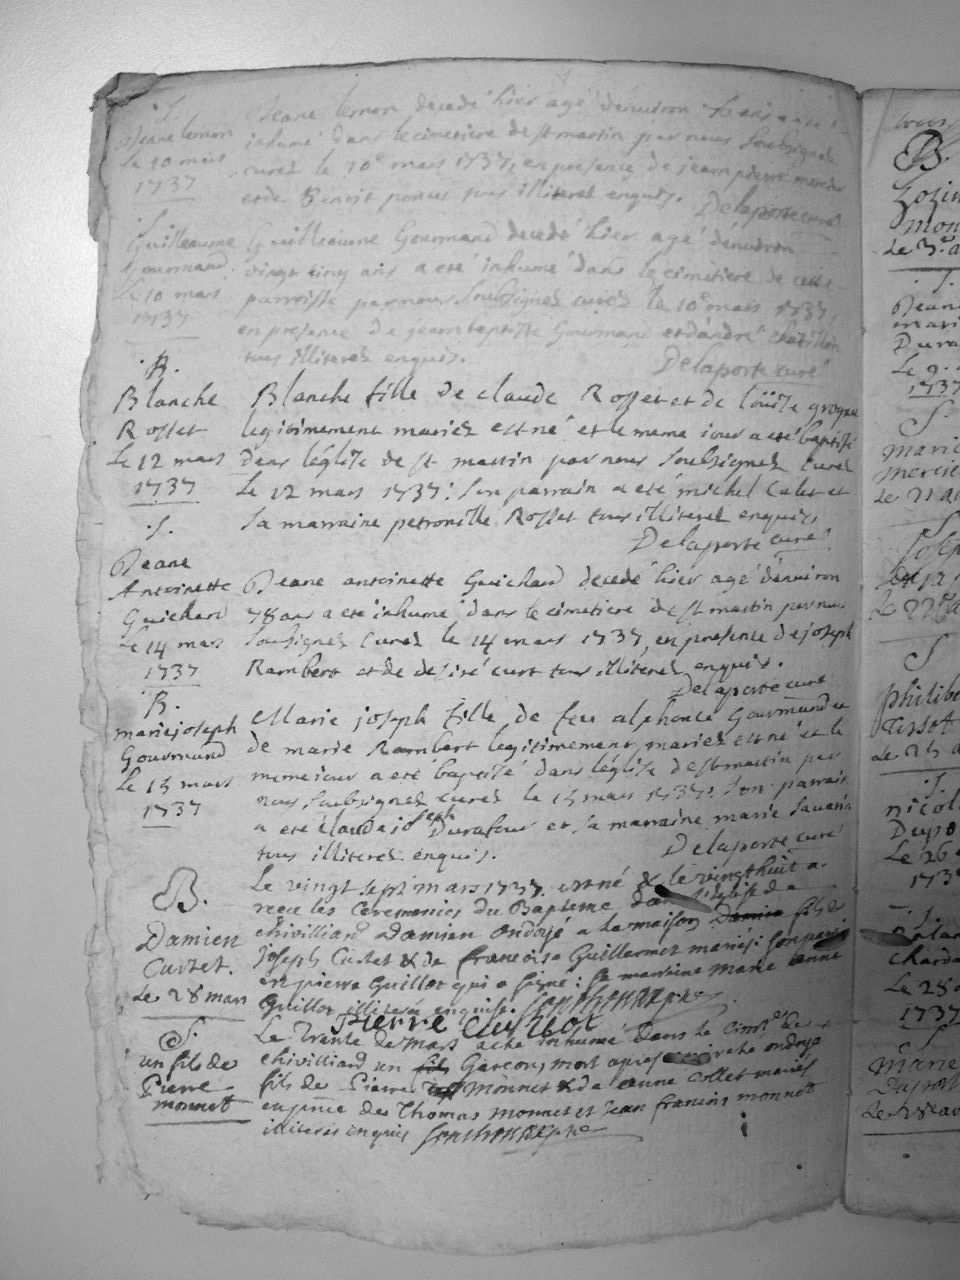 .S.
Jeane lernon
le 10 mars
1737
Jeane lernon decedé hier agé denviron
inhumé dans le cimetiere de st martin par nous soubsignez
curez le 10e mars 1737, en presence de jean pierre mercier
et de Benoit tous illiterez enquis.
Delaporte curé
.S.
Guilleaume
Gourmand
le 10 mars
1737
Guilleaume Gourmand decedé hier agé d'environ
vingt cinq ans a eté inhumé dans le cimetiere de cette
parroisse par nous soubsignez curez le 10e mars 1737,
en presence de jean baptiste Gourmand et d'andré chatillon
tous illiterez enquis.
Delaporte curé
.B.
Blanche
Rosset
le 12 mars
1737
Blanche fille de claude Rosset et de loüise
legitimement mariez est né et le meme iour a eté baptisé
dans léglise de st martin par nous soubsignez curez
le 12 mars 1737: son parrain a eté michel Calet et
sa marraine petronille Rosset tous illiterez enquis
Delaporte curé
.S.
Jeane
Antoinette
Guichard
le 14 mars
1737
Jeane antoinette Guichard decedé hier agé d'environ
78 ans a eté inhumé dans le cimetiere de st martin par nous
soubsignez curez le 14 mars 1737, en presence de joseph
Rambert et de desiré curt tous illiterez enquis.
Delaporte curé
.B.
marie joseph
Gourmand
le 15 mars
1737
Marie joseph fille de feu alphonce Gourmand et
de marie Rambert legitimement mariez est né et le
meme iour a eté baptisé dans léglise de st martin par
nous soubsignez curez le 15 mars 1737: son parrain
a eté claude joseph Durafour et sa marraine marie
tous illiterez enquis.
Delaporte curé
B.
Damien
Curtet.
le 28 mars
Le vingt sept mars 1737 est né & le vingt huit a
receu les Ceremonies du Bapteme dans l'eglise de
chivilliard Damien ondoyé a la maison fils de
joseph Curtet & de francoise Guillermet mariés: son parain
est pierre Guillot qui a signé: sa marraine marie anne
Guillot illiterée enquise.
Pierre Guillot
.S.
un fils de
Pierre
monnet
Le Trente de mars a eté inhumé dans le Cimre de
chivilliard un Garcon, mort apres ondoyé
fils de Pierre monnet & de anne Collet mariés
en pnce de Thomas monnet et jean francois monnet
illiterés enquis
B.
mon
le 3.
.S.
Jeane
mari
Dura
Le 9.
1737
S
marie
mercie
le 21 a
Joseph
S
Philibe
Tissot
le 25 a
.S.
nicol
Dupo
Le 26
1737
.S.
Charda
Le 28
1737
S
Marie
Dupont